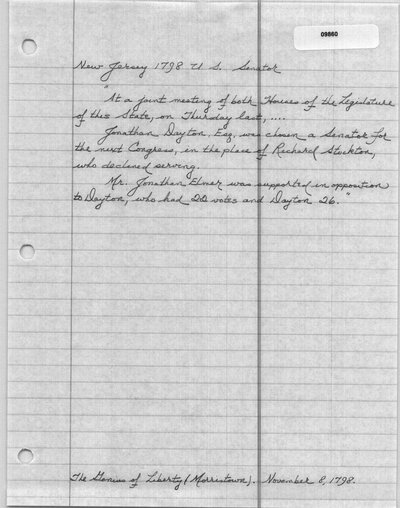 09860
New Jersey 1798 U S. Senator
"At a joint meeting of both Houses of the Legislature
of this State, on Thursday last, ....
Jonathan Dayton, Esq. was chosen a Senator for
the next Congress, in the place of Richard Stockton,
who declined serving.
Mr. Jonathan Elmer was supported in opposition
to Dayton, who had 22 votes and Dayton 26."
The Genius of Liberty (Morristown). November 8, 1798.